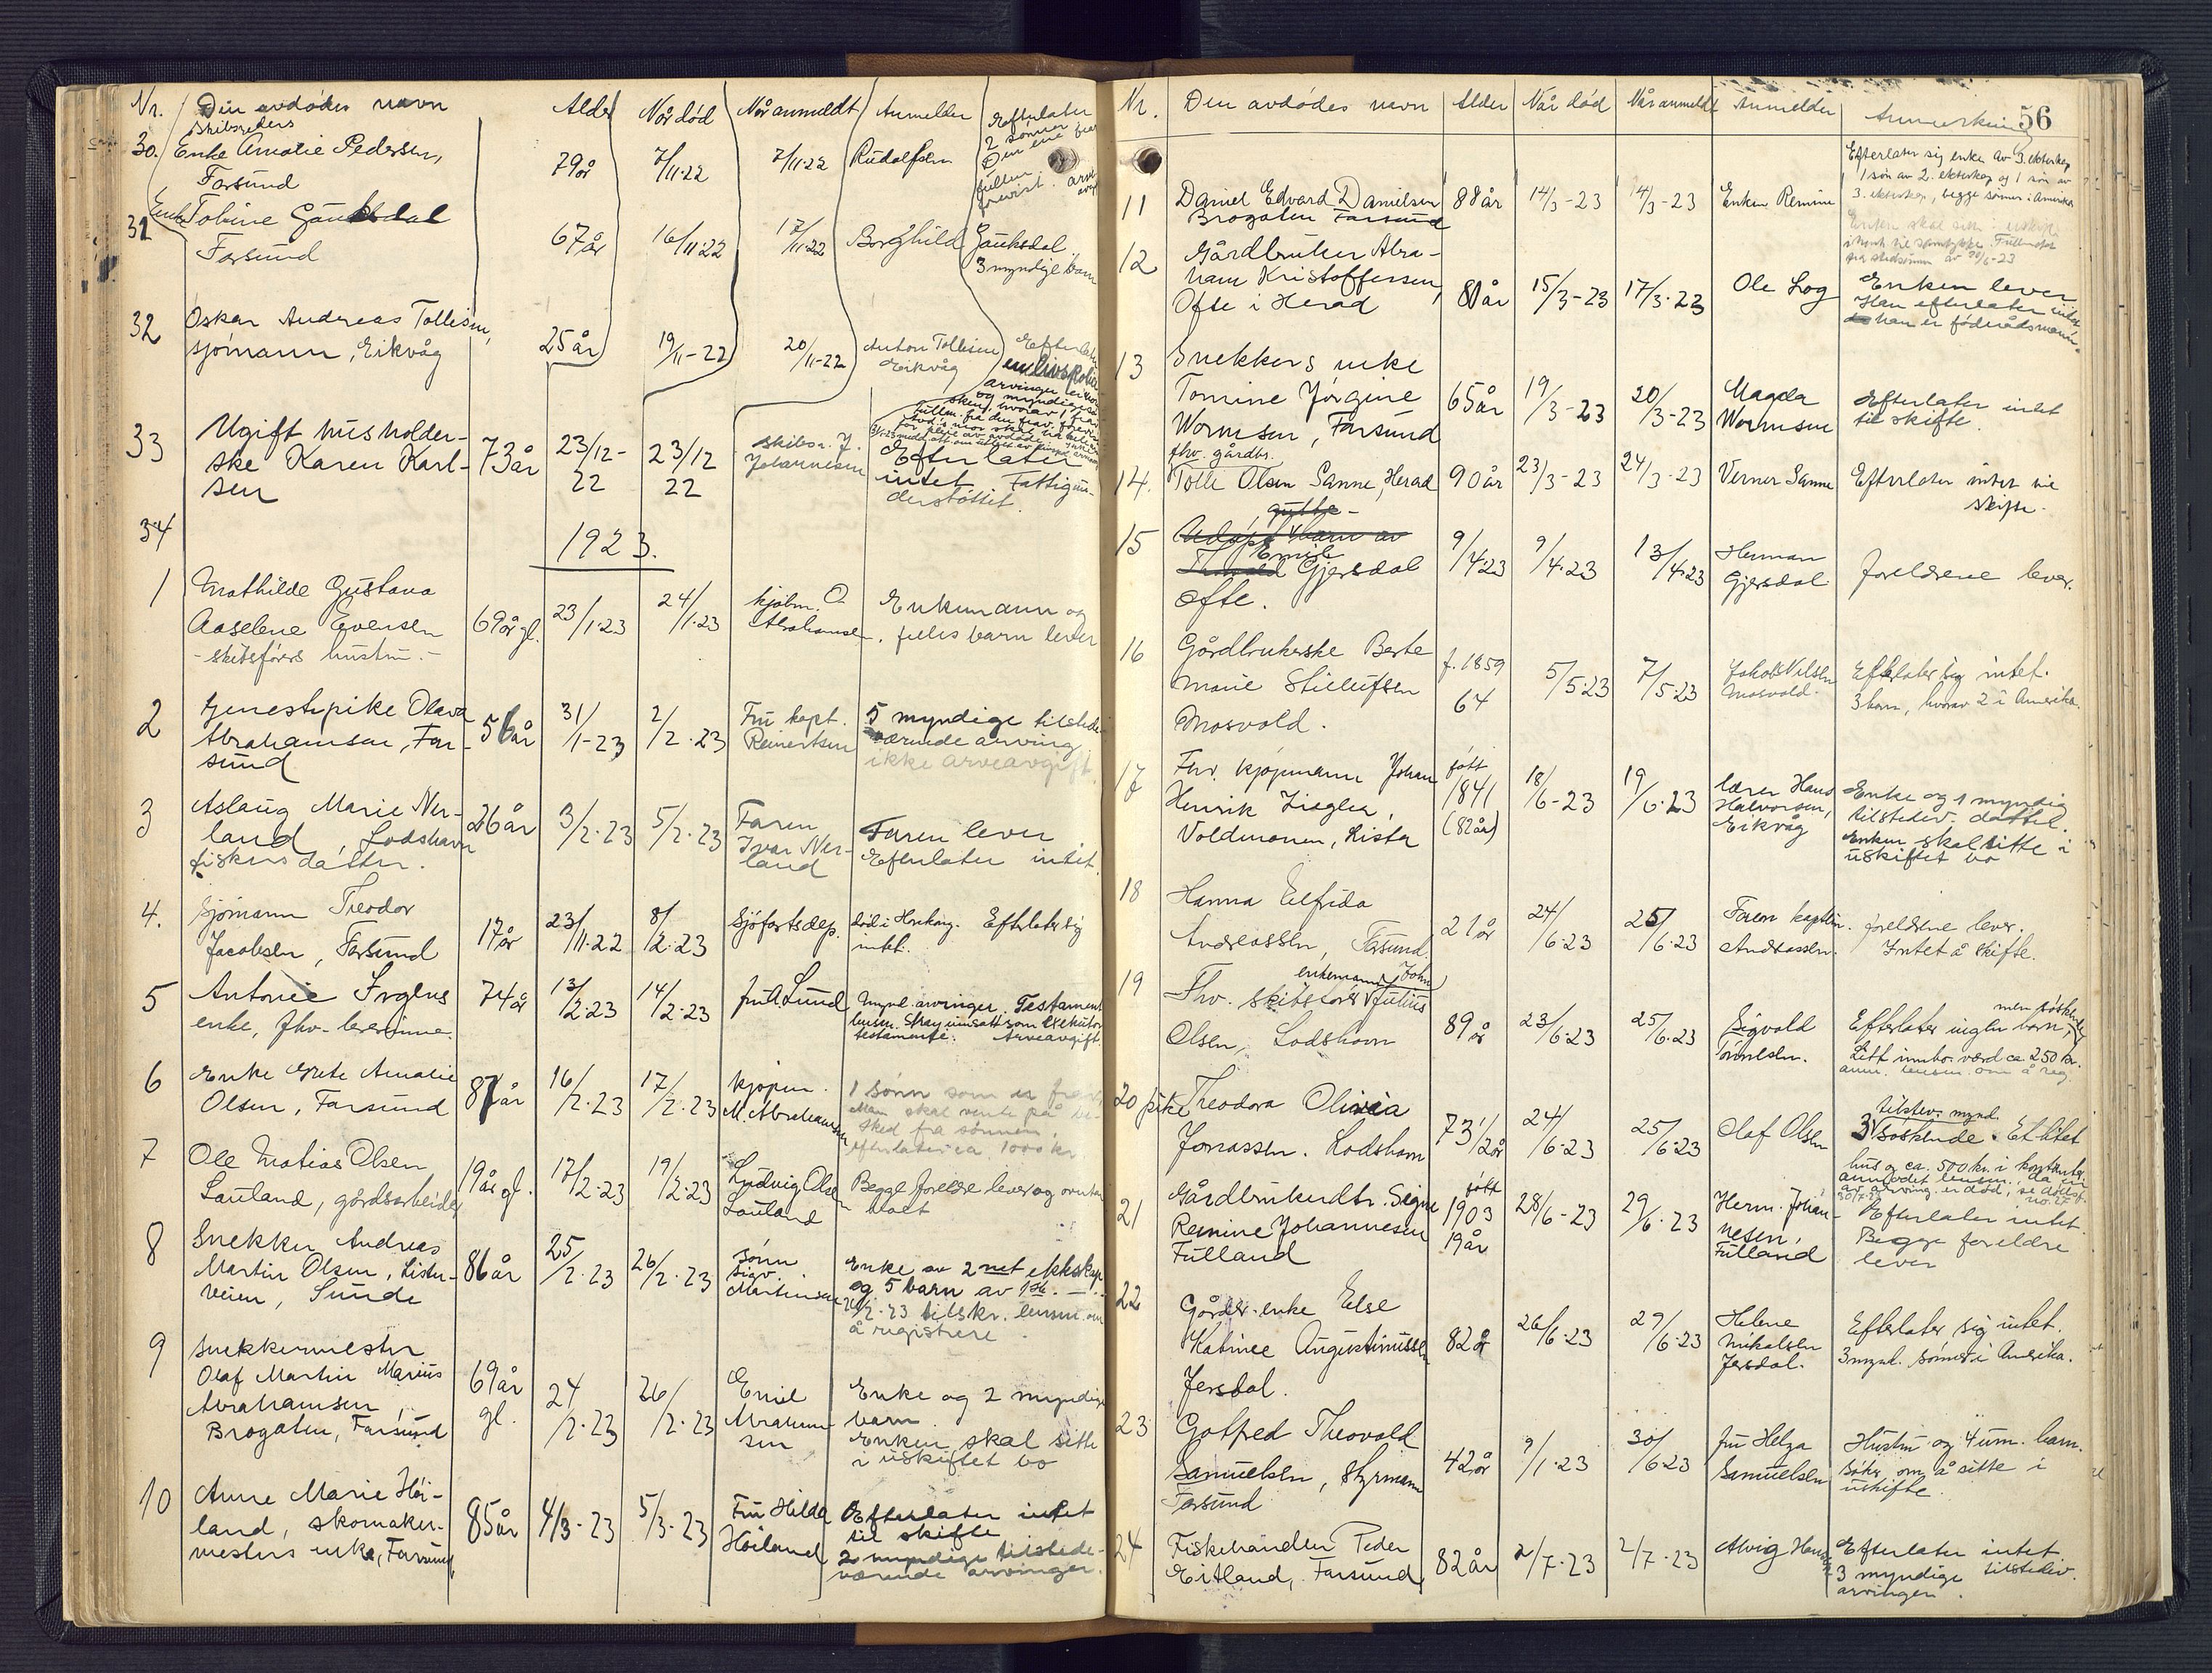 Nr. Den avdødes navn Alder Når død Når anmeldt Anmelder Efterlater
30. skibsreders
Enke Amalie Pedersen, 79 år 7/11-22 7/11-22 Rudolfsen 2 sønner
Farsund Den ene
31 Enke Tobine Gauksdal 67 år 16/11-22 17/11-22 Borghild Gauksdal
Farsund 3 myndige barn
32 Oskar Andreas Tollisen, 25 år 19/11-22 20/11-22 Anton Tollisen
sjømann, Eikvåg Eikvåg en livspolise
33 Ugift husholder- 73 år 23/12- 23/12 skibsr. J. Efterlater
ske Karen Karl- 22 22 Johannesen intet. Fattigun-
sen derstøttet.
34
1923.
1 Mathilde Gustava 69 år gl. 23/1-23 24/1-23 kjøbm. O. Enkemann og
Aaselene Evensen Abrahamsen, felles barn lever
- skibsførers hustru. -
2 Tjenestepike Olava 56 år 31/1-23 2/2-23 Fru kapt. 5 myndige tilstede
Abrahamsen, Far- Reinertsen værende arving
sund ikke arveavgift.
3 Aslaug Marie Ner- 26 år 3/2-23 5/2-23 Faren Faren lever
land, Lodshavn Ivar Ner- Efterlater intet
fiskers datter. land
4. Sjømann Theodor 17 år 23/11-22 8/2-23 Sjøfartsdep. død i Honkong. Efterlater sig
Jacobsen, Farsund intet.
5 Antonie 74 år 13/2-23 14/2-23 fru A. Lund Mynd. arvinger. Testament
enke, fhv. lærerinne. testamente. Arveavgift.
6 Enke Grete Amalie 87 år 16/2-23 17/2-23 kjøpm. 1 sønn som er
Olsen, Farsund M. Abrahamsen Man skal vente på be-
sked fra sønnen,
efterlater ca. 1000 kr
7 Ole Matias Olsen 19 år gl. 17/2-23 19/2-23 Ludvig Olsen Begge foreldre lever og
Lauland, gårdsarbeider Lauland
8 Snekker Andreas 86 år 25/2-23 26/2-23 sønn Enke av 2net ekteskap
Martin Olsen, Lister- Sigv. og 5 barn av 1ste —
veien, Sunde Martinsen tilskr. lensm. om
å registrere.
9 Snekkermester
Olaf Martin Marius 69 år 24/2-23 26/2-23 Emil Enke og 2 myndige
Abrahamsen, gl. Abraham- barn.
Brogaten, Farsund sen Enken skal sitte
i uskiftet bo
10 Anne Marie Høi- 85 år 4/3-23 5/3-23 Fru Hilda Efterlater intet
land, skomaker- Høiland til skifte
mesters enke, Farsund 2 myndige tilstede-
værende arvinger.
Nr. Den avdødes navn Alder Når død Når anmeldt Anmelder Anmerkning 56
Efterlater sig enke av 3. ekteskap
1 søn av 2. ekteskap og 1 søn av
11 Daniel Edvard Danielsen 88 år 14/3-23 14/3-23 Enken Remine 3. ekteskap, begge sønner i Amerika
Brogaten Farsund Enken skal sitte i uskifte
12 Gårdbruker Abra-
ham Kristoffersen, 80 år 15/3-23 17/3-23 Ole Log Enken lever.
Ofte i Herad Han efterlater intet
han er føderådsmann.
13 Snekkers enke
Tomine Jørgine 65 år 19/3-23 20/3-23 Magda Efterlater intet
Wormsen, Farsund Wormsen til skifte.
fhv. gårdbr.
14. Tolle Olsen Sanne, Herad 90 år 23/3-23 24/3-23 Verner Sanne Efterlater intet til
skifte.
gutte-
15 Udøpt barn av 9/4-23 9/4-23 13/4-23 Herman foreldrene lever.
Emile
Gjersdal Gjersdal
Ofte.
16 Gårdbrukerske Berte f. 1859 5/5-23 7/5-23 Jakob Nilsen Efterlater sig intet.
Marie Stellufsen 64 Mosvold. 3 barn, hvorav 2 i Amerika.
Mosvold.
17 Fhv. kjøpmann Johan født 18/6-23 19/6-23 lærer Hans Enke og 1 myndig
Henrik Ziegler, 1841 Halvorsen, tilstedev. datter.
Voldmonen, Lista (82 år) Eikvåg Enken skal sitte i
uskiftet bo
18 Hanna Elfrida 21 år 24/6-23 25/6-23 Faren kaptein foreldrene lever.
Andreassen, Farsund. Andreassen. Intet å skifte.
19 enkemann John
Fhv. skibsfører Julius 89 år 23/6-23 25/6-23 Sigvald Efterlater ingen barn, men søskende
Olsen, Lodshavn Tønnesen. Litt innbo værd ca 250 kr.
anm. lensm. om å reg.
20 pike Theodora Olivia 73 1/2 år 24/6-23 25/6-23 Olaf Olsen tilstev. mynd.
Jonassen. Lodshavn 3 søskende. Et litet
hus og ca. 500 kr. i kontanter,
21 Gårdbrukerdtr. Signe født 28/6-23 29/6-23 Herm. Johan- Efterlater intet.
Remine Johannesen 1903 nesen, Begge foreldre
Fulland 19 år Fulland lever
22 Gårdbr. enke Else 82 år 26/6-23 29/6-23 Helene Efterlater sig intet.
Katrine Augustinussen Mikalsen 3 mynd. sønner i Amerika.
Jersdal. Jersdal.
23 Gotfred Theovald 42 år 9/1-23 30/6-23 fru Helga Hustru og 4 um. barn.
Samuelsen, styrmann Samuelsen søker om å sitte i
Farsund uskifte.
24 Fiskehandler Peder 82 år 2/7-23 2/7-23 Alvig Hansen Efterlater intet
Eitland, Farsund. 3 myndige tilstedev.
arvinger.